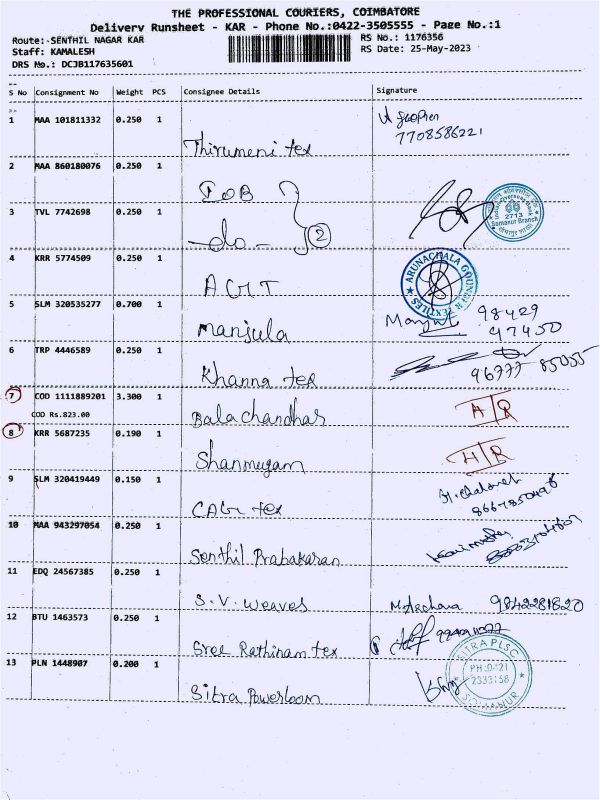 THE PROFESSIONAL COURIERS, COIMBATORE
Delivery Runsheet - KAR - Phone No.:0422-3505555 - Page No.:1
Route: SENTHIL NAGAR KAR
RS No.: 1176356
Staff: KAMALESH
RS Date: 25-May-2023
DRS No.: DCJB117635601
S No Consignment No Weight PCS Consignee Details Signature
1 MAA 101811332 0.250 1 Thirumeni tex
7708586221
2 MAA 860180076 0.250 1 IOB
3 TVL 7742698 0.250 1 -do- 2
Indian Overseas Bank
2713
Samanur Branch
4 KRR 5774509 0.250 1 AGT
ARUNACHALA GOUNDER TEXTILES
5 SLM 320535277 0.700 1 Manjula
98429
47450
6 TRP 4446589 0.250 1 Khanna tex
96777 85055
7 COD 1111889201 3.300 1 Balachandhar A/R
COD Rs.823.00
8 KRR 5687235 0.190 1 Shanmugam H/R
9 SLM 320419449 0.150 1 CAG tex
10 MAA 943297054 0.250 1 Senthil Prabakaran
11 EDQ 24567385 0.250 1 S.V. Weaves
9842281820
12 BTU 1463573 0.250 1 Sree Rathinam tex
13 PLN 1448907 0.200 1 Sitra Powerloom
SITRA PLSC
PH:0421
2333158
SOMANUR